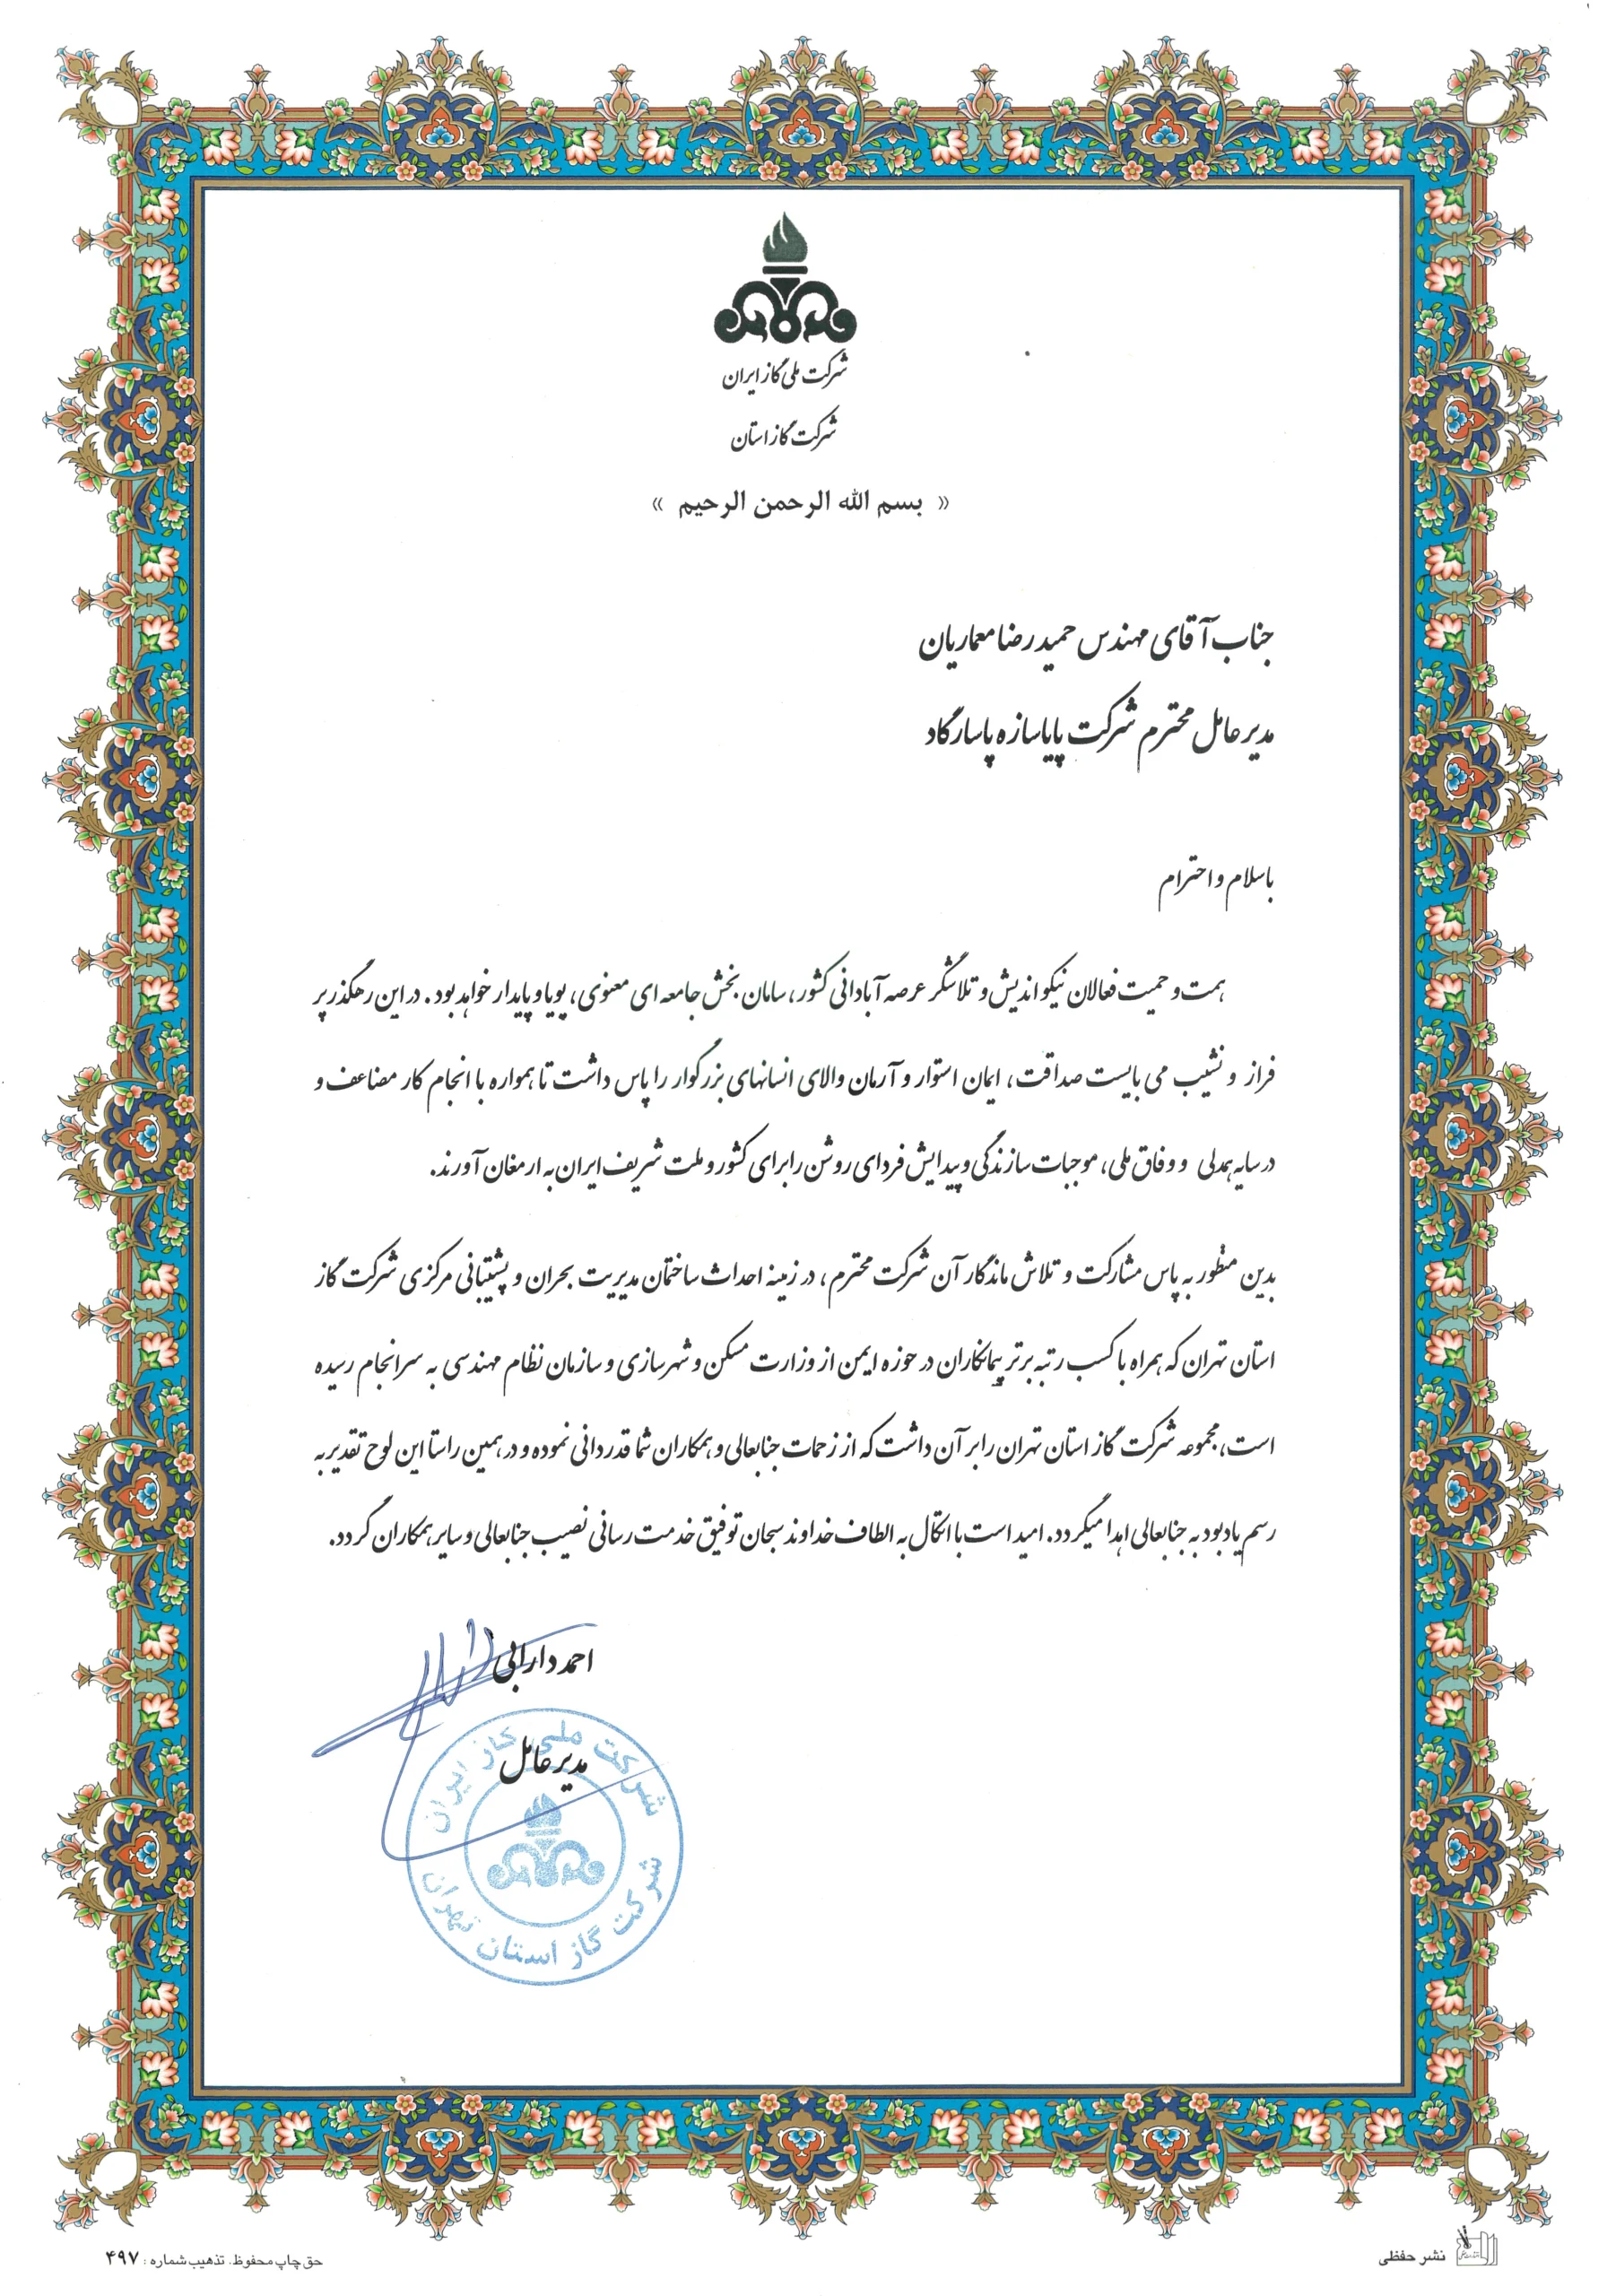 شرکت ملی گاز ایران
شرکت گاز استان
« بسم الله الرحمن الرحیم »
جناب آقای مهندس حمید رضا معماریان
مدیر عامل محترم شرکت پایاسازه پاسارگاد
باسلام و احترام
همت و حمیت فعالان نیکو اندیش و تلاشگر عرصه آبادانی کشور، سامان بخش جامعه ای معنوی، پویا و پایدار خواهد بود. در این رهگذر پر
فراز و نشیب می بایست صداقت، ایمان استوار و آرمان والای انسانهای بزرگوار را پاس داشت تا همواره با انجام کار مضاعف و
در سایه همدلی و وفاق ملی، موجبات سازندگی و پیدایش فردای روشن را برای کشور و ملت شریف ایران به ارمغان آورند.
بدین منظور به پاس مشارکت و تلاش ماندگار آن شرکت محترم، در زمینه احداث ساختمان مدیریت بحران و پشتیبانی مرکزی شرکت گاز
استان تهران که همراه با کسب رتبه برتر پیمانکاران در حوزه ایمن از وزارت مسکن و شهرسازی و سازمان نظام مهندسی به سرانجام رسیده
است، مجموعه شرکت گاز استان تهران را بر آن داشت که از زحمات جنابعالی و همکاران شما قدردانی نموده و در همین راستا این لوح تقدیر به
رسم یادبود به جنابعالی اهدا میگردد. امید است با اتکال به الطاف خداوند سبحان توفیق خدمت رسانی نصیب جنابعالی و سایر همکاران گردد.
احمد دارابی
مدیر عامل
شرکت ملی گاز ایران
شرکت گاز استان تهران
نشر حفظی
حق چاپ محفوظ. تذهیب شماره : ۴۹۷